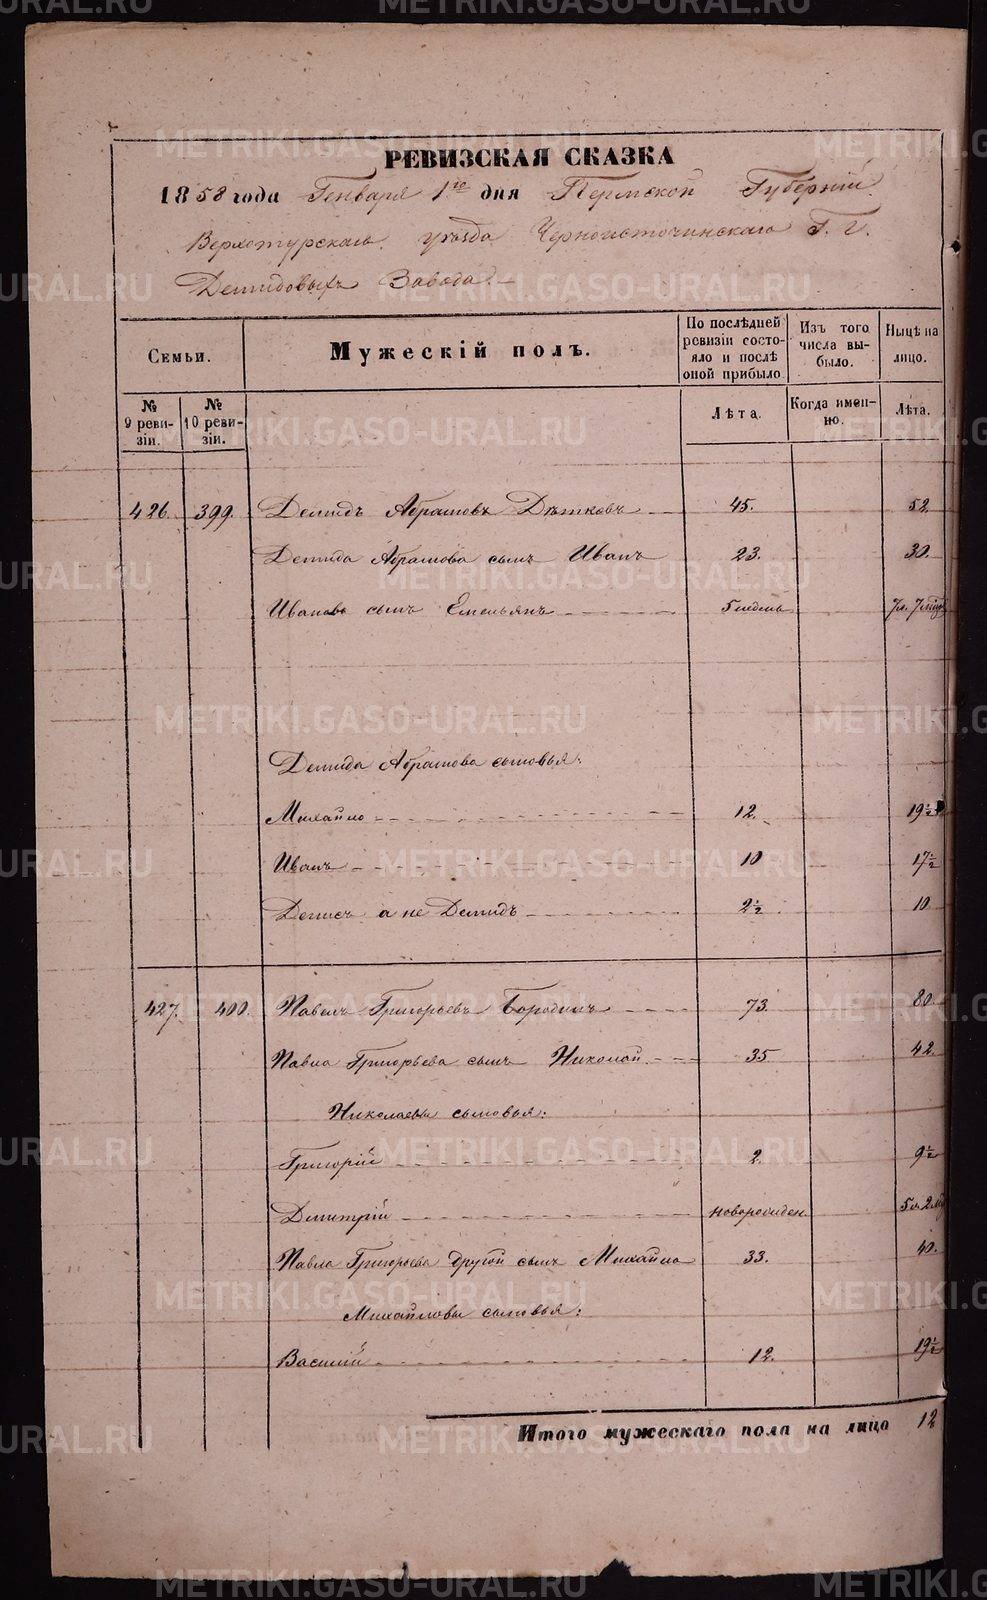 РЕВИЗСКАЯ СКАЗКА
1858 года Генваря 1го дня Пермской Губерніи
Верхотурскаго уѣзда Черноисточинскаго Г. г.
Демидовыхъ Завода
Семьи.
Мужескій полъ.
По послѣдней ревизіи состояло и послѣ оной прибыло
Изъ того числа выбыло.
Нынѣ на лицо.
№ 9 ревизіи.
№ 10 ревизіи.
Лѣта.
Когда именно.
Лѣта.
426. 399. Демидъ Абрамовъ Дѣтковъ 45. 52.
Демида Абрамова сынъ Иванъ 23. 30.
Иванова сынъ Емельянъ 5 недель 7 л. 7 мѣс
Демида Абрамова сыновья:
Михайло 12. 19½
Иванъ 10 17½
Денисъ а не Демидъ 2½ 10
427. 400. Павелъ Григорьевъ Бородинъ 73. 80.
Павла Григорьева сынъ Николай 35 42.
Николаевы сыновья:
Григорій 2. 9½
Дмитрій новорожден. 5 л. 2 м
Павла Григорьева другой сынъ Михайло 33. 40.
Михайловы сыновья:
Василій 12. 19½
Итого мужескаго пола на лицо 12
METRIKI.GASO-URAL.RU